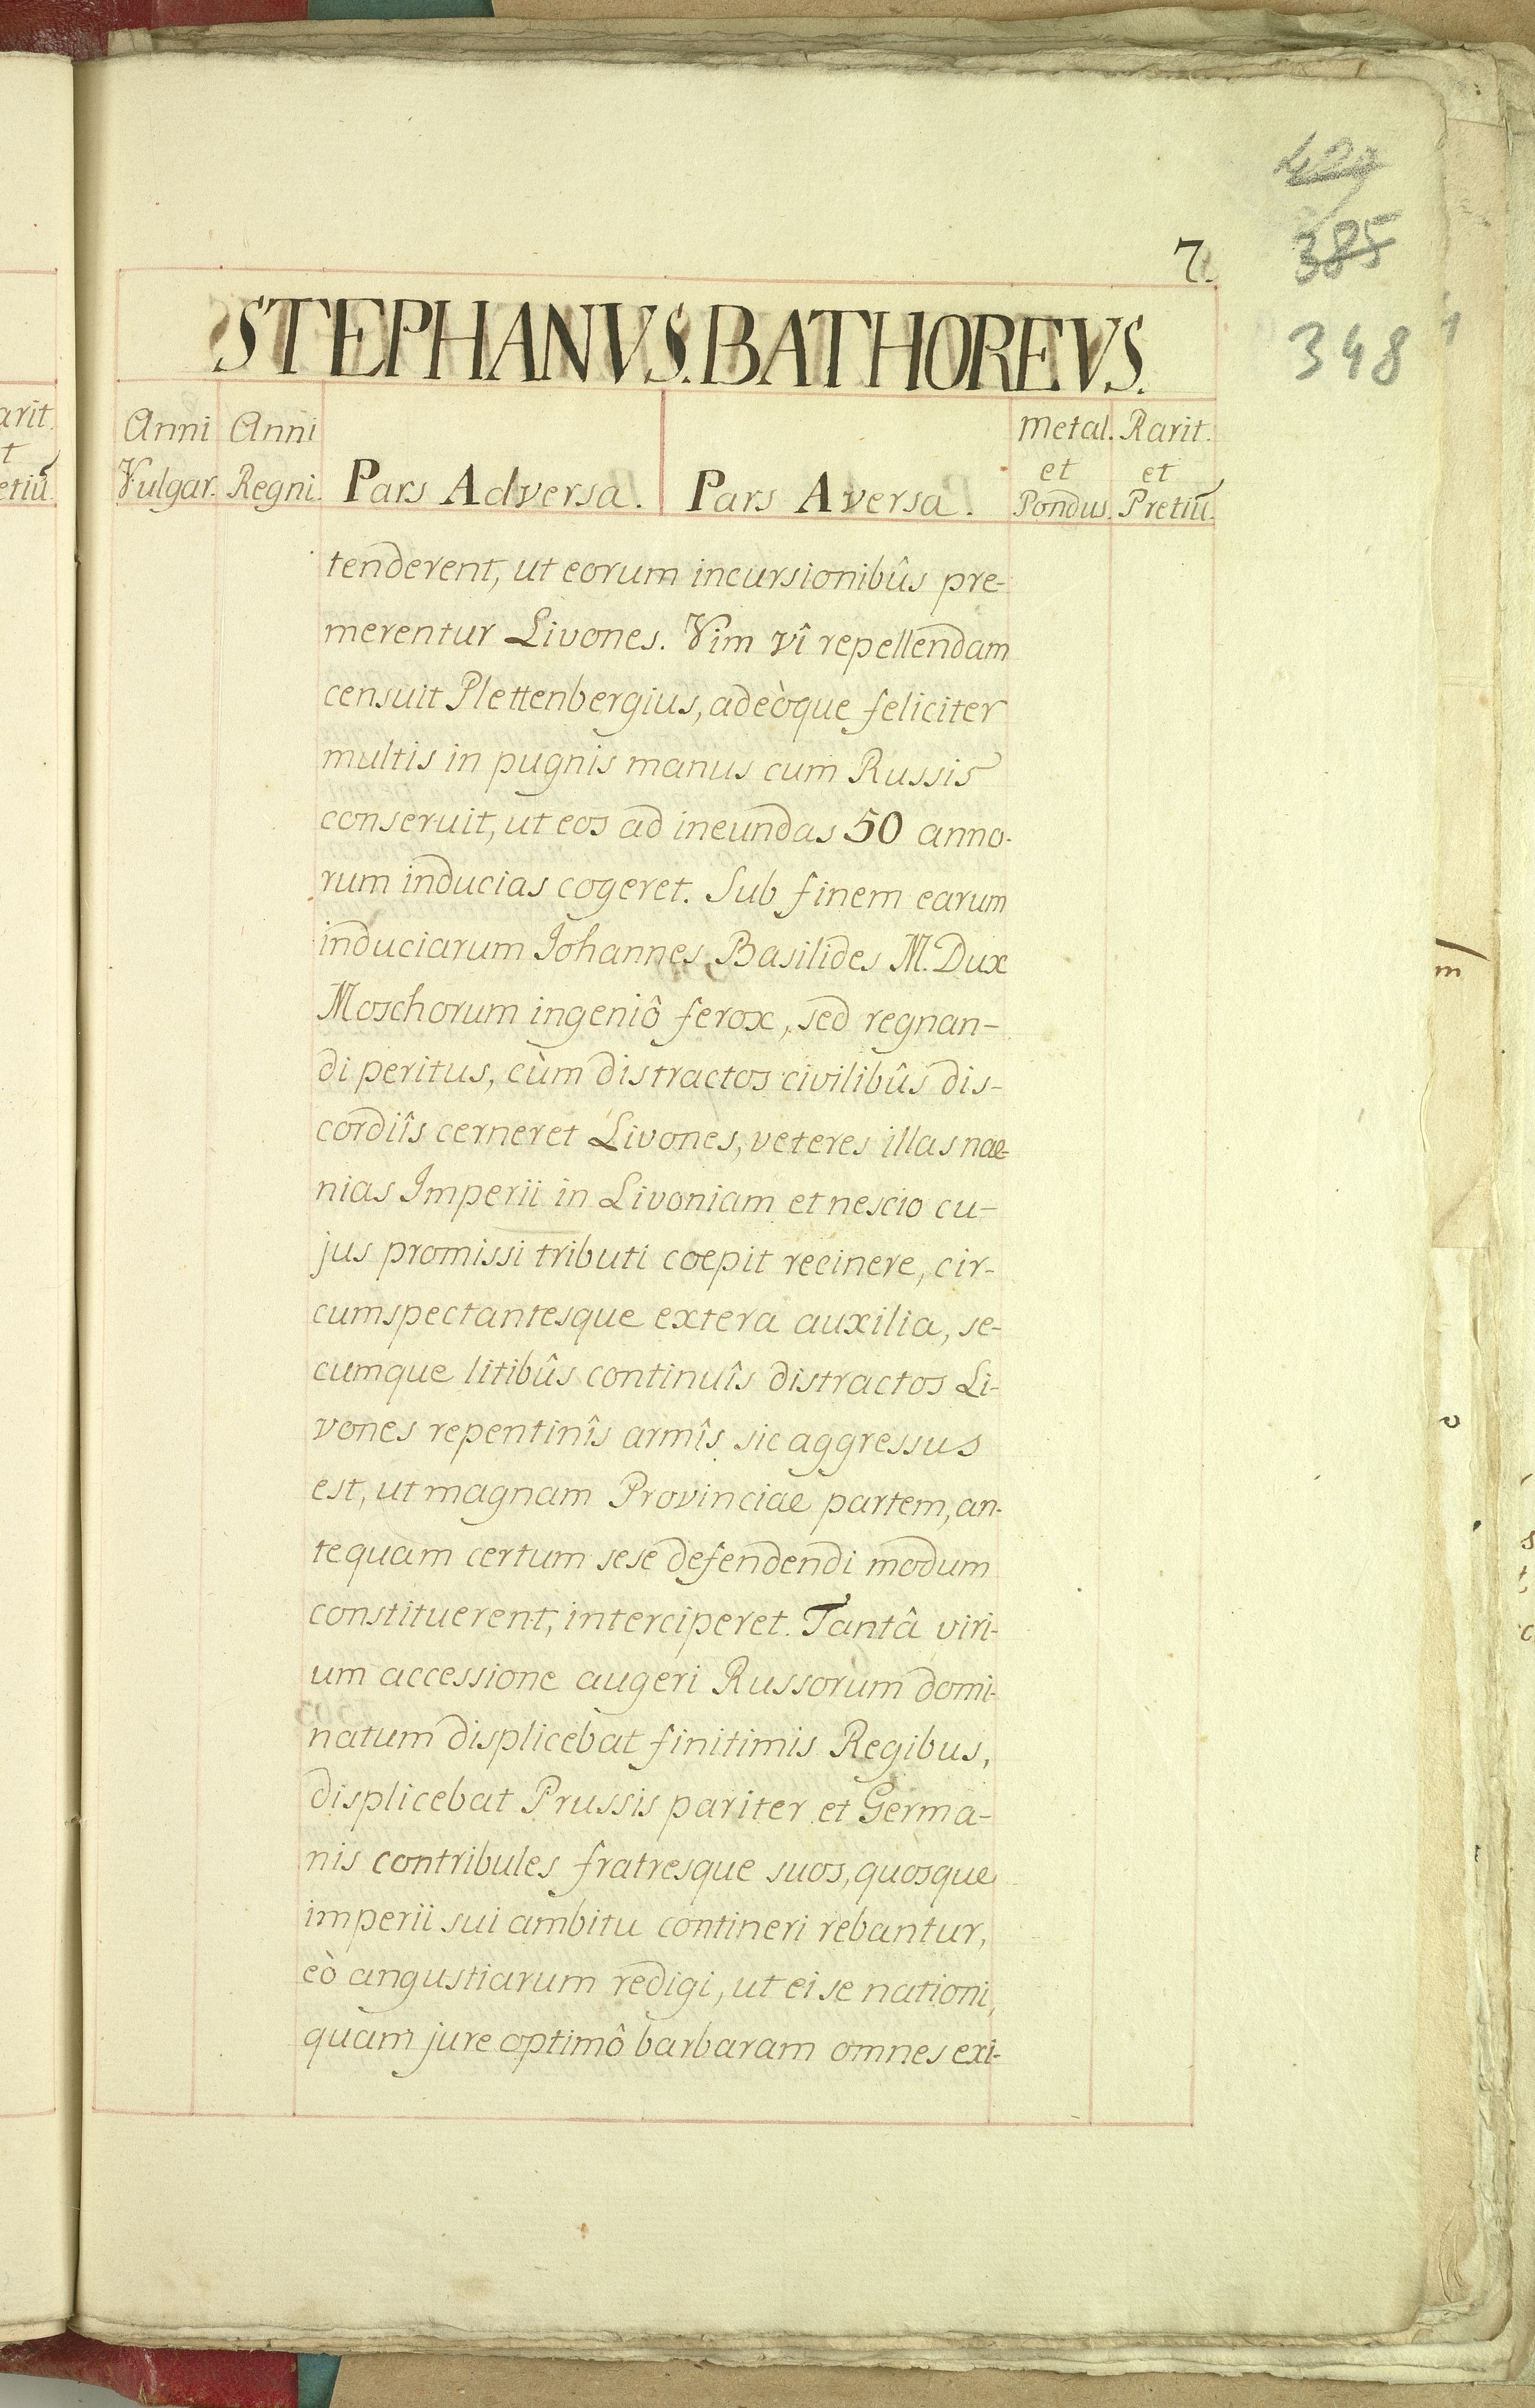 429
385
348
7.
STEPHANVS. BATHOREVS.
Anni Vulgar.
Anni Regni.
Pars Adversa.
Pars Aversa.
Metal. et Pondus.
Rarit. et Pretiū.
tenderent, ut eorum incursionibûs pre-
merentur Livones. Vim vî repellendam
censuit Plettenbergius, adeòque feliciter
multis in pugnis manus cum Russis
conseruit, ut eos ad ineundas 50 anno-
rum inducias cogeret. Sub finem earum
induciarum Iohannes Basilides M. Dux
Moschorum ingeniô ferox, sed regnan-
di peritus, cùm distractos civilibûs dis-
cordiîs cerneret Livones, veteres illas nae-
nias Imperii in Livoniam et nescio cu-
jus promissi tributi coepit recinere, cir-
cumspectantesque extera auxilia, se-
cumque litibûs continuîs distractos Li-
vones repentinîs armîs sic aggressus
est, ut magnam Provinciae partem, an-
tequam certum sese defendendi modum
constituerent, interciperet. Tantâ viri-
um accessione augeri Russorum domi-
natum displicebat finitimis Regibus,
displicebat Prussis pariter et Germa-
nis contribules fratresque suos, quosque
imperii sui ambitu contineri rebantur,
eò angustiarum redigi, ut ei se nationi,
quam jure optimô barbaram omnes exi-